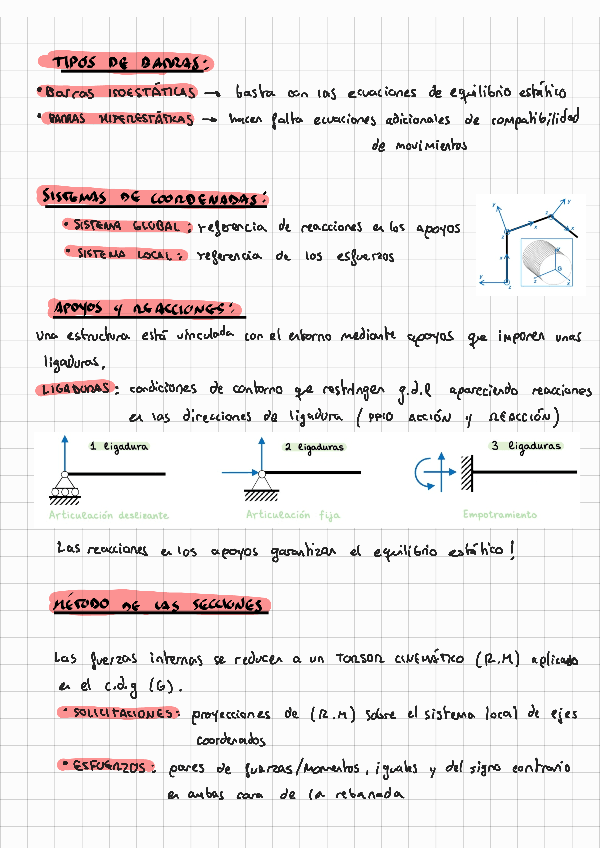 TIPOS DE BARRAS:
• Barras ISOESTÁTICAS → basta con las ecuaciones de equilibrio estático
• BARRAS HIPERESTÁTICAS → hacen falta ecuaciones adicionales de compatibilidad
de movimientos
SISTEMAS DE COORDENADAS:
• SISTEMA GLOBAL: referencia de reacciones en los apoyos
• SISTEMA LOCAL: referencia de los esfuerzos
APOYOS Y REACCIONES:
Una estructura está vinculada con el entorno mediante apoyos que imponen unas
ligaduras.
LIGADURAS: condiciones de contorno que restringen g.d.l apareciendo reacciones
en las direcciones de ligadura (PPIO ACCIÓN Y REACCIÓN)
1 ligadura 2 ligaduras 3 ligaduras
Articulación deslizante Articulación fija Empotramiento
Las reacciones en los apoyos garantizan el equilibrio estático!
MÉTODO DE LAS SECCIONES
Las fuerzas internas se reducen a un TORSOR CINEMÁTICO (R.M) aplicado
en el c.d.g (G).
• SOLICITACIONES: proyecciones de (R.M) sobre el sistema local de ejes
coordenados
• ESFUERZOS: pares de fuerzas/momentos, iguales y del signo contrario
en ambas cara de la rebanada